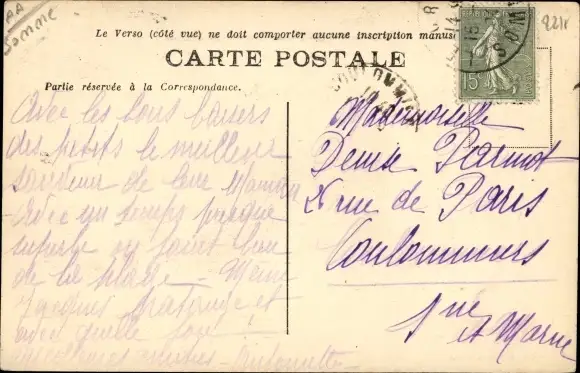 AA
Somme
921r
Le Verso (côté vue) ne doit comporter aucune inscription manus
CARTE POSTALE
Partie réservée à la Correspondance.
15
SOMM
COULOMMIERS
Avec les bons baisers
des petits le meilleur
souvenir de leur Maman
Avec un temps presque
superbe on jouit bien
de la plage - Même
Jacques
et
avec quelle
Antoinette -
Mademoiselle
Denise Parmot
26 rue de Paris
Coulommiers
Sne et Marne